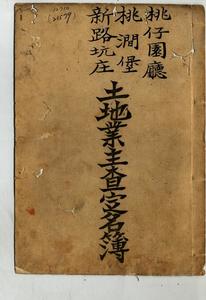 桃仔園廳
桃澗堡
新路坑庄
土地業主查定名簿